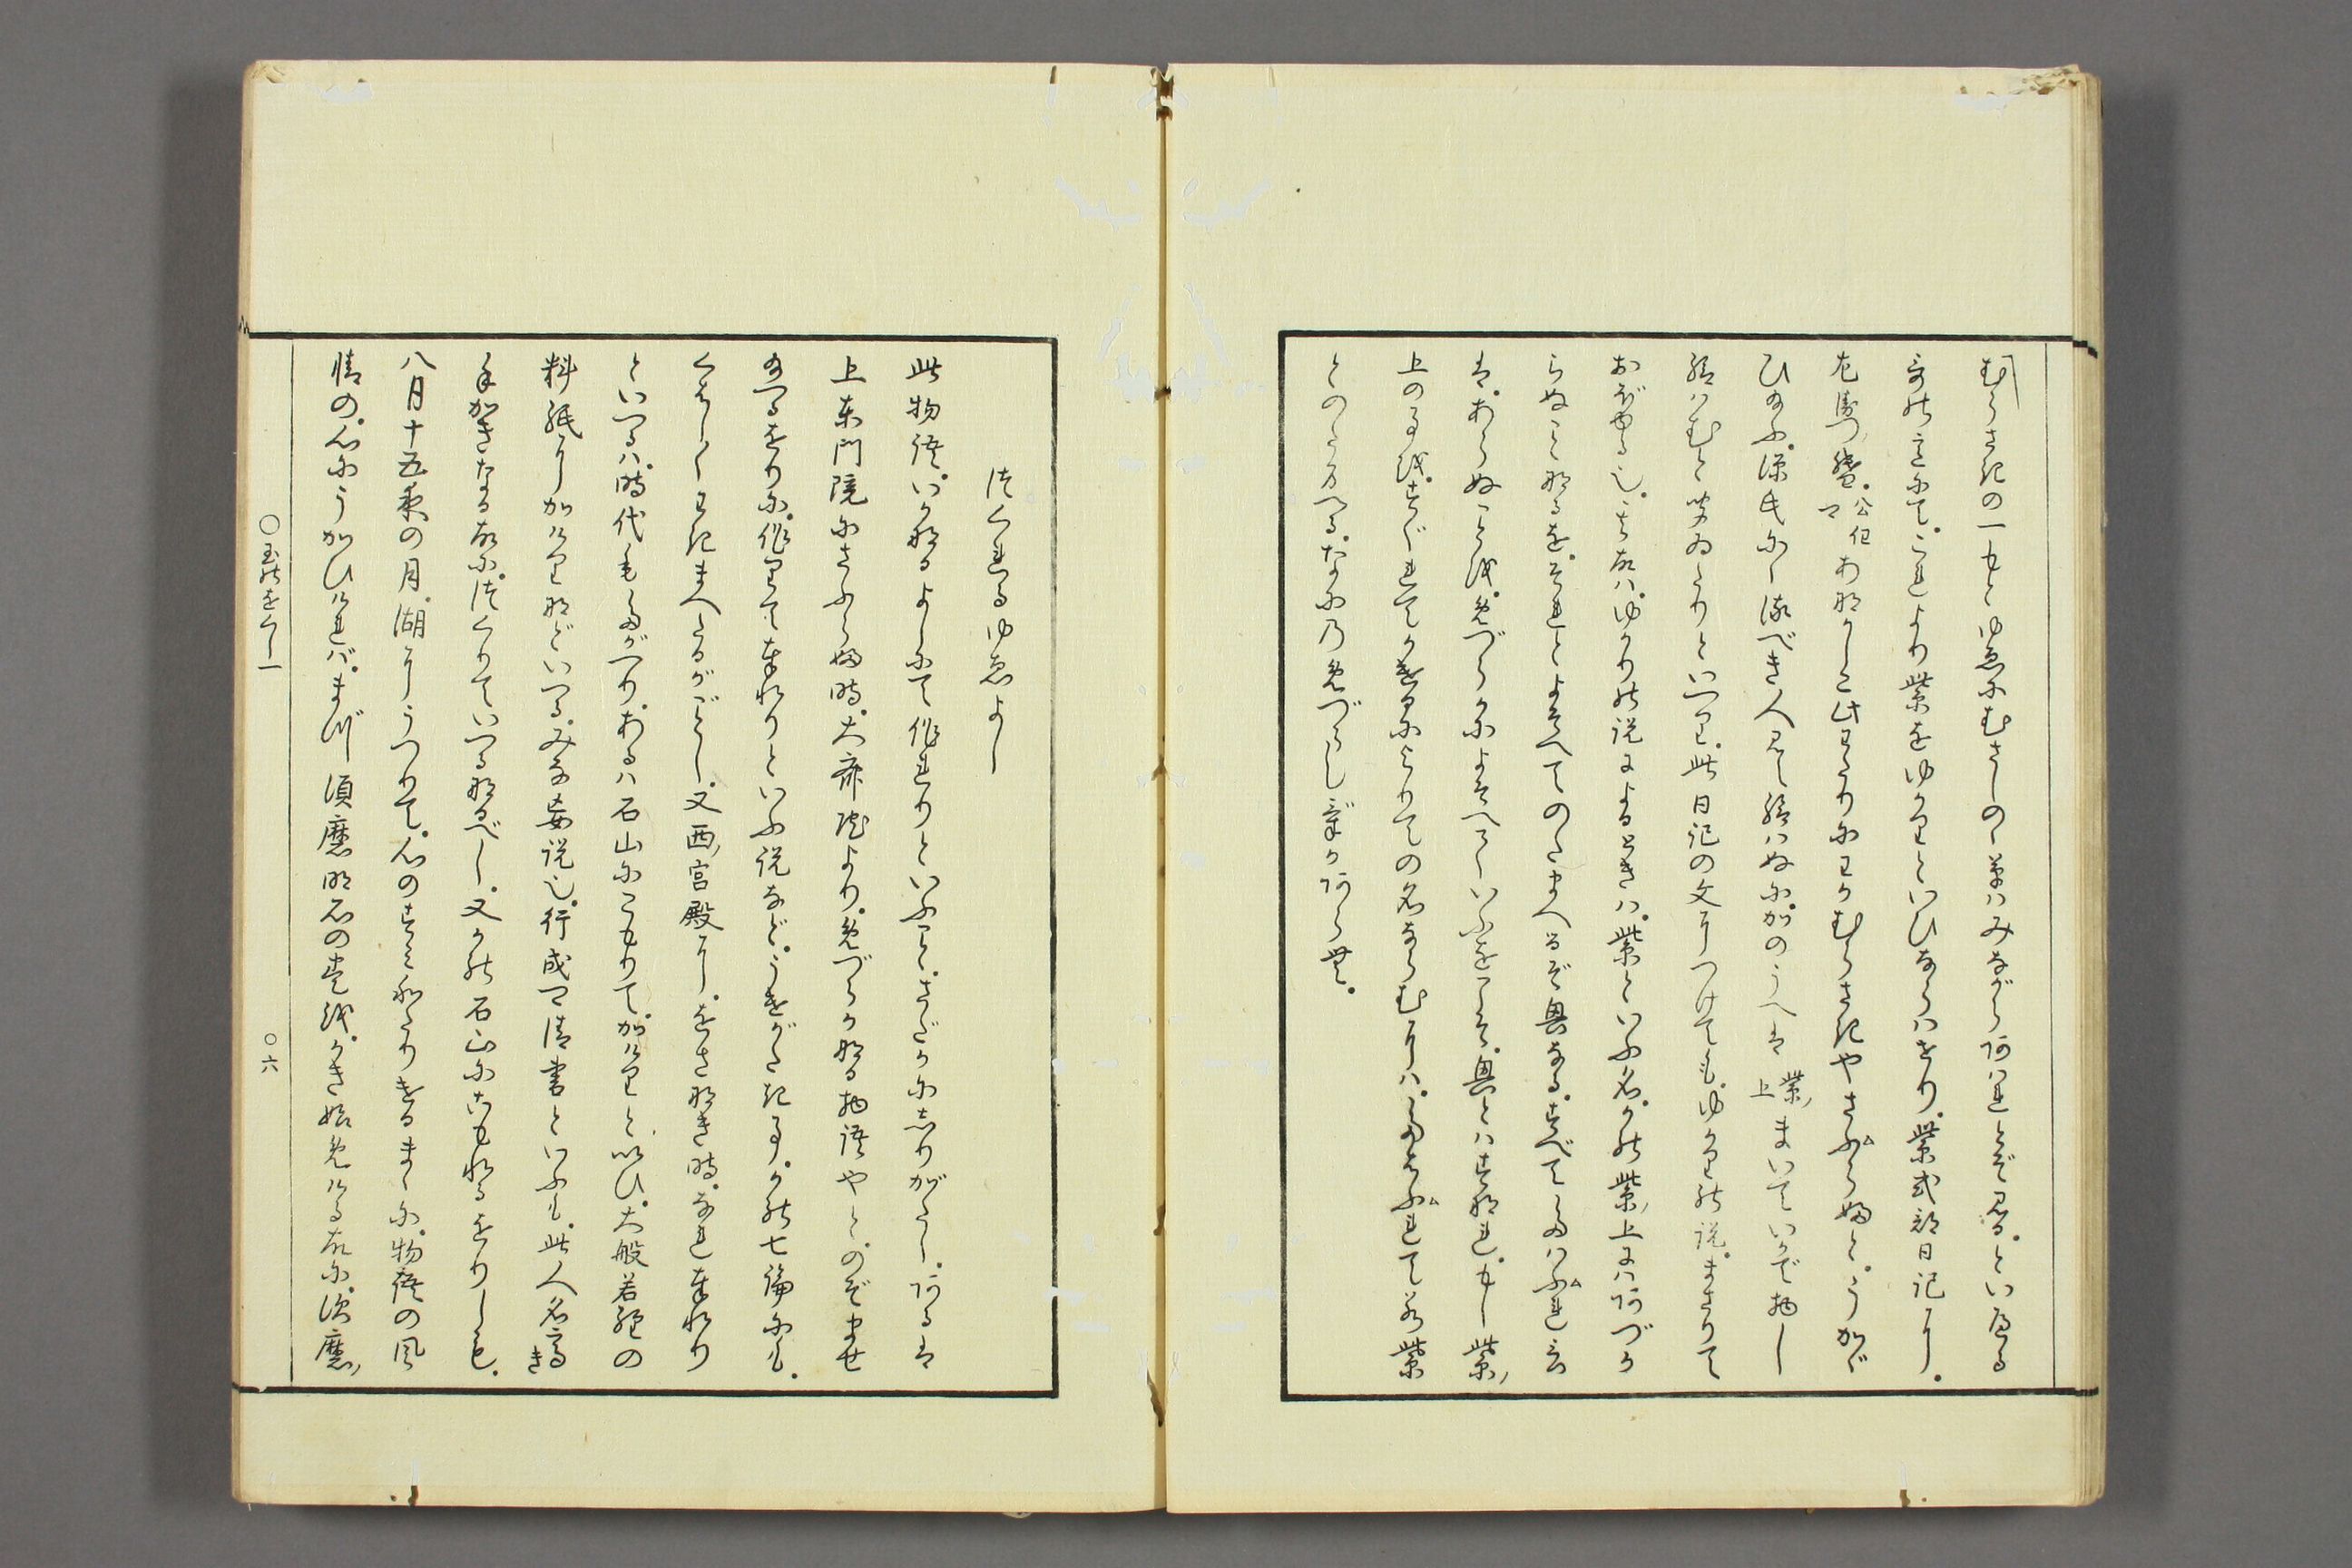 むらさきの一もとゆゑにむさしのゝ草はみながらあはれとぞ見る。といへる
哥の意にて。これより紫をゆかりといひならはせり。紫式部日記に。
左衛門ノ督。公任ノあなかしこ此わたりにわかむらさきやさぶらふと。うかゞ
ひ給ふ。源氏にかゝるべき人見え給はぬに。かのうへは紫ノ上まいていかで物し
給はむと聞ゐたりといへり。此日記の文につけても。ゆかりの説。まさりて
おぼゆる也。其故は。ゆかりの説によるときは。紫といふ名。かの紫ノ上にはあづか
らぬことなるを。それとよそへてのたまへるぞ興なる。すべてたはぶれ言
は。あらぬことを。めづらかによそへていふをこそ。興とはすなれ。もし紫ノ
上の事を。すぐれてかけるによりての名ならむには。たはぶれて若紫
とのたまへる。なにのめづらしげかあらむ。
つくれるゆゑよし
此物語。いかなるよしにて作れりといふこと。さだかにしりがたし。あるは
上東門院にさぶらふ時。大斎院より。めづらかなる物語やと。のぞませ
給へるをりに。作りて奉れりといふ説など。うけがたき事。かの七論にも。
くはしくわきまへたるがごとし。又西ノ宮殿に。をさなき時。なれ奉れり
といへるは。時代もたがへり。あるは石山にこもりて。かけりといひ。大般若経の
料紙にかけりなどいへる。みな妄説也。行成ノ清書といふも。此人名高き
手かきなる故に。つくりていへるなるべし。又かの石山にこもれるをりしも。
八月十五夜の月。湖にうつりて。心のすみわたりけるまゝに。物語の風
情の。心にうかびければ。まづ須磨明石の巻を。かき始めける故に。須磨ノ
〇玉のをぐし一
〇六